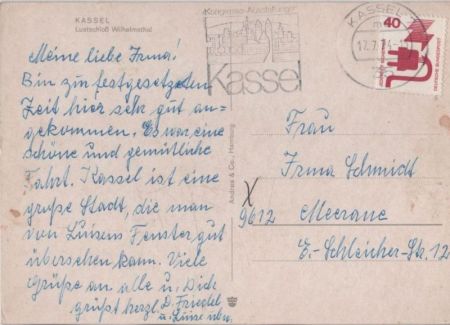 KASSEL
Lustschloß Wilhelmsthal
Meine liebe Irma!
Bin zur festgesetzten
Zeit hier sehr gut an-
gekommen. Es war eine
schöne und gemütliche
Fahrt. Kassel ist eine
große Stadt, die man
von Luisens Fenster gut
übersehen kann. Viele
Grüße an alle u. Dich
grüßt herzl. D. Friedel
u. Luise
Andres & Co., Hamburg
Kassel
KASSEL
17.7.74
40
DEUTSCHE BUNDESPOST
Frau
Irma Schmidt
X
9612 Meerane
E.-Schleicher-Str. 12